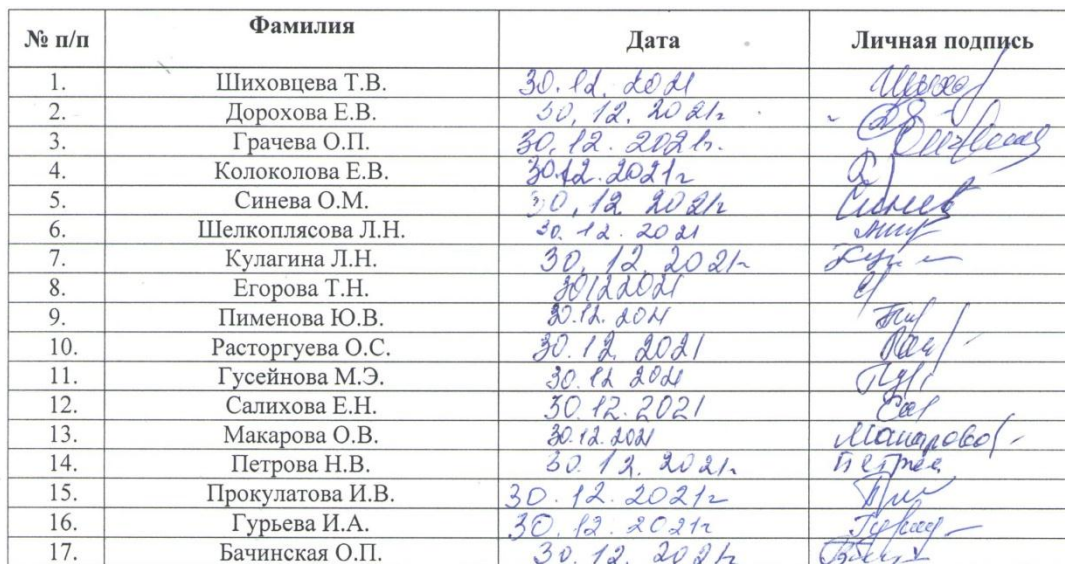 № п/п Фамилия Дата Личная подпись
1. Шиховцева Т.В. 30.12.2021
2. Дорохова Е.В. 30.12.2021г
3. Грачева О.П. 30.12.2021г.
4. Колоколова Е.В. 30.12.2021г
5. Синева О.М. 30.12.2021г Синев
6. Шелкоплясова Л.Н. 30.12.2021
7. Кулагина Л.Н. 30.12.2021г
8. Егорова Т.Н. 30122021
9. Пименова Ю.В. 30.12.2021
10. Расторгуева О.С. 30.12.2021
11. Гусейнова М.Э. 30.12 2021
12. Салихова Е.Н. 30.12.2021
13. Макарова О.В. 30.12.2021
14. Петрова Н.В. 30.12.2021г
15. Прокулатова И.В. 30.12.2021г
16. Гурьева И.А. 30.12.2021г
17. Бачинская О.П. 30.12.2021г